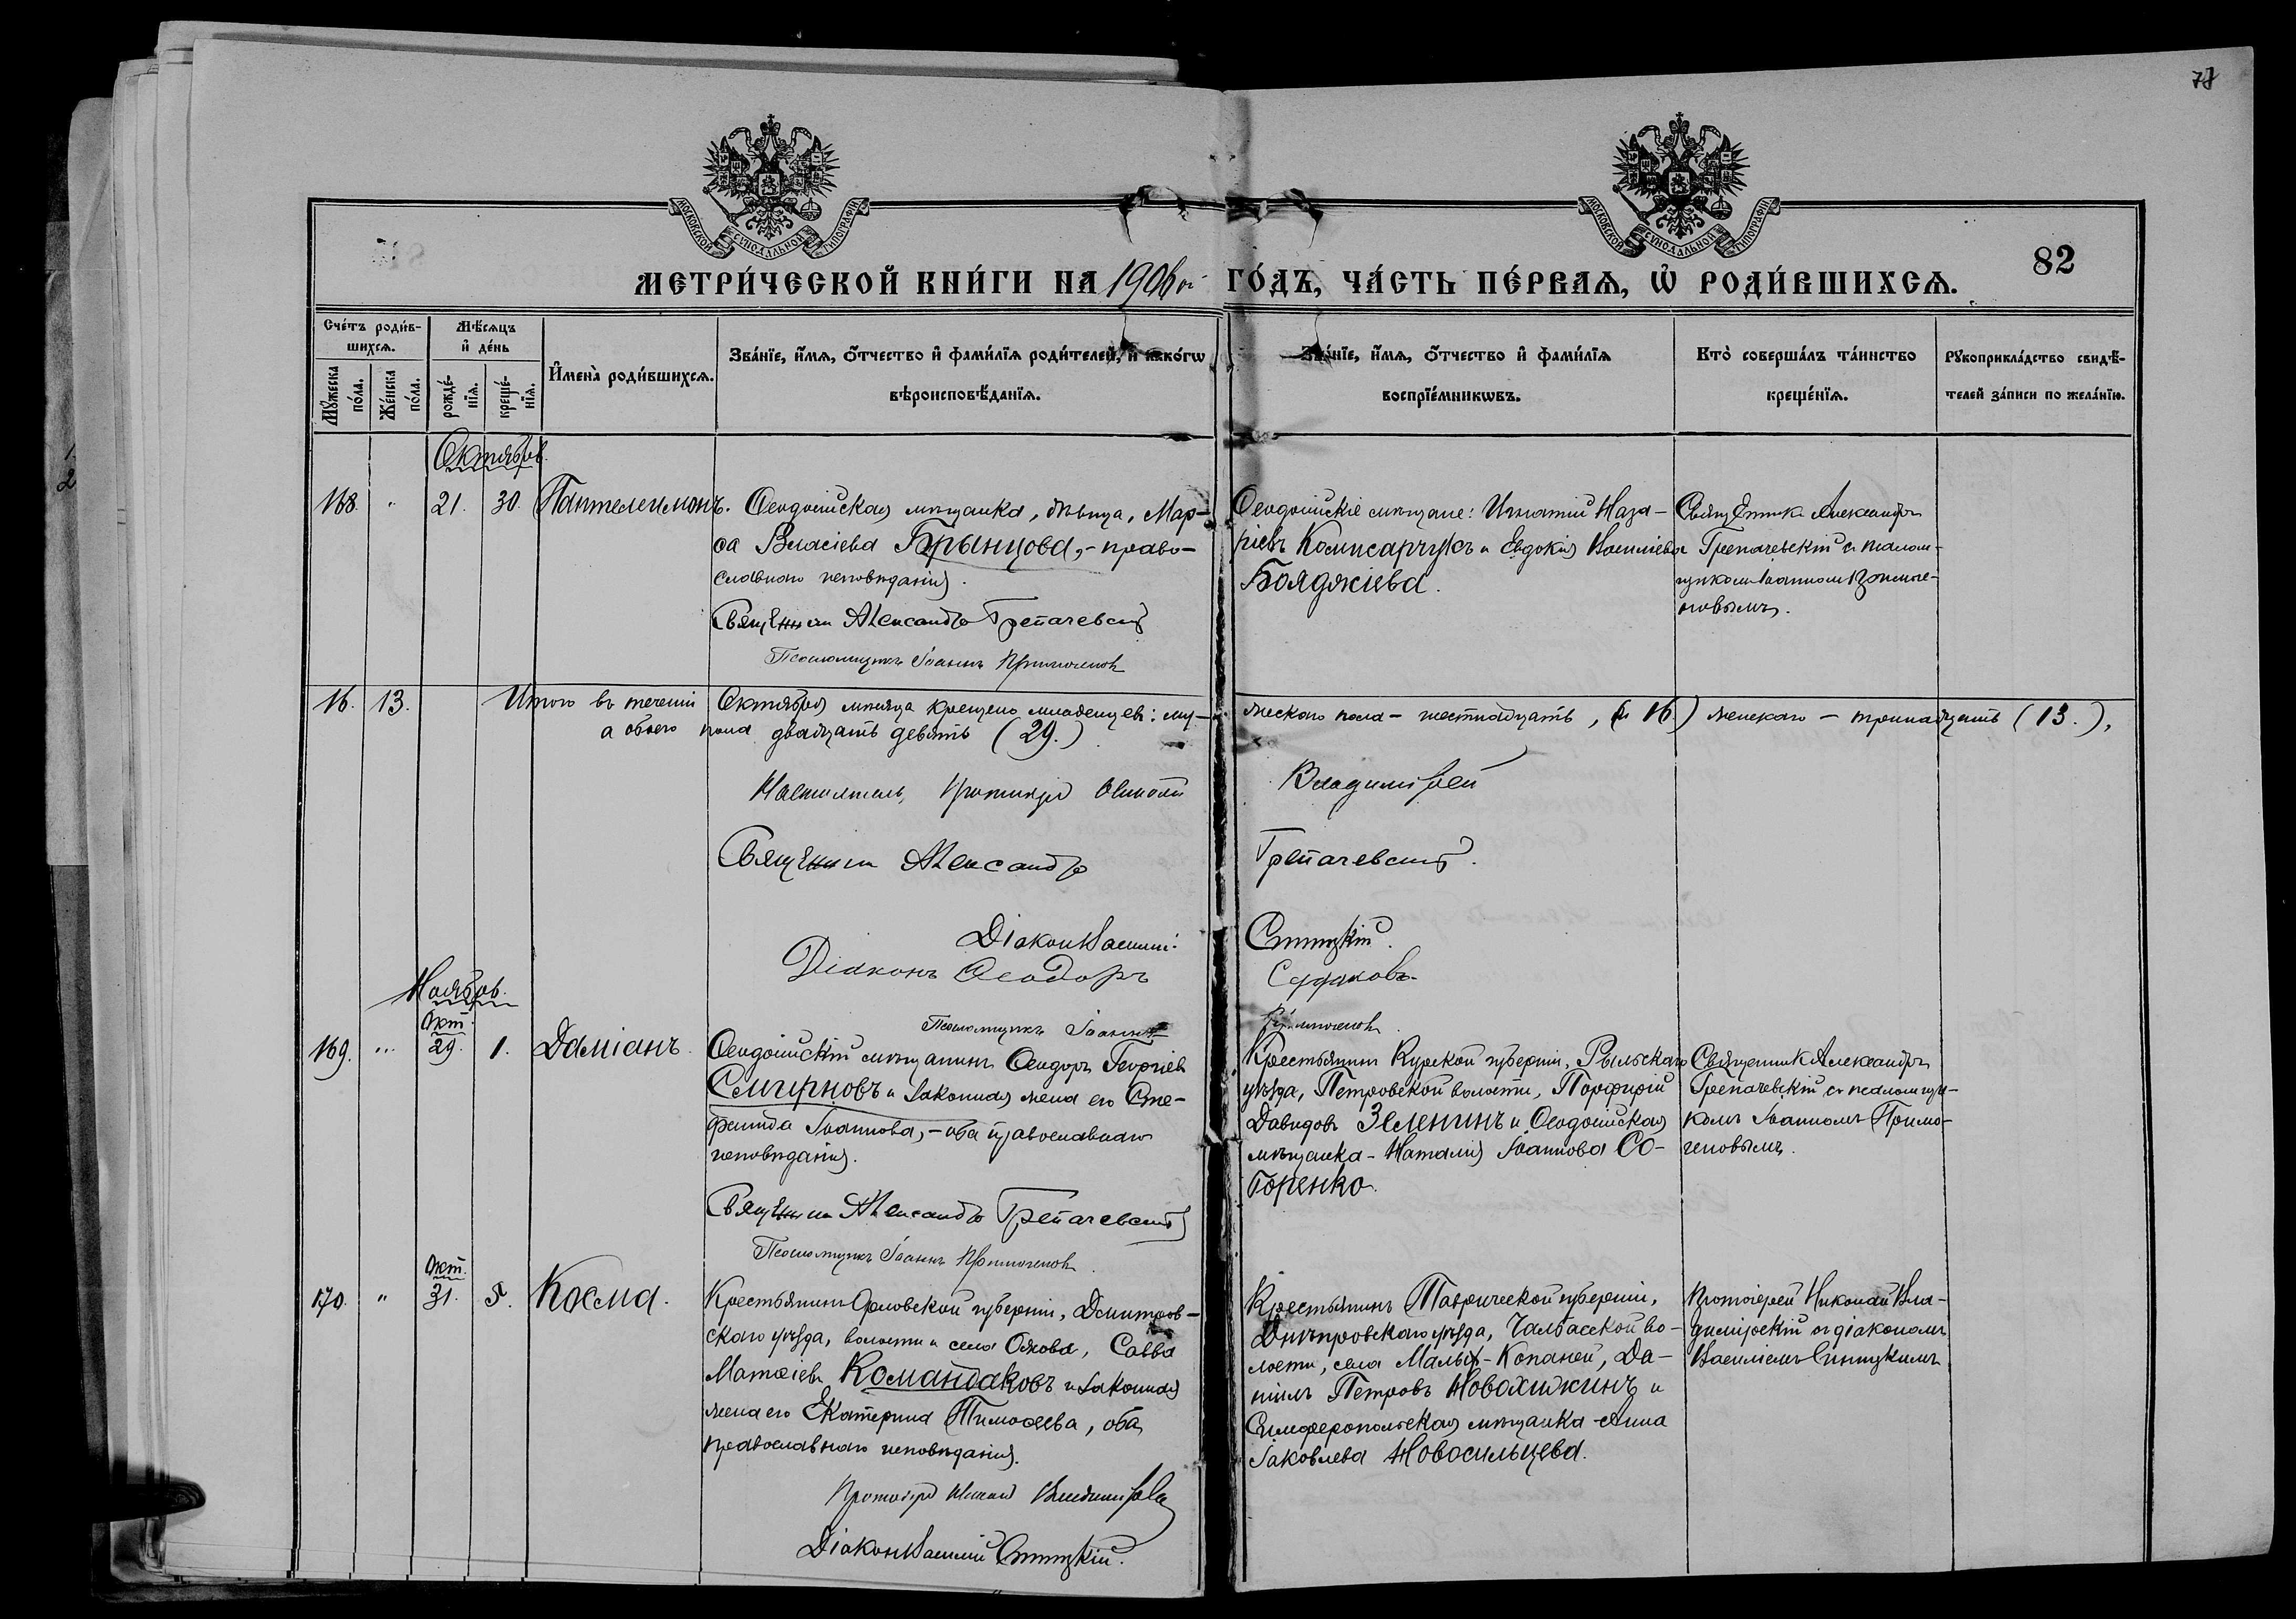 78
МОСКОВСКОЙ СѴНОДАЛЬНОЙ ТИПОГРАФІИ
МОСКОВСКОЙ СѴНОДАЛЬНОЙ ТИПОГРАФІИ
82
МЕТРИ́ЧЕСКОЙ КНИ́ГИ НА 1906 ой ГО́ДЪ, ЧА́СТЬ ПЕ́РВАѦ, Ѡ РОДИ́ВШИХСѦ.
Сче́тъ роди́в-
шихсѧ.
Мꙋ́жеска по́ла.
Же́нска по́ла.
Мѣ́сѧцъ
и҆ де́нь
рожде́-
нїѧ.
креще́-
нїѧ.
И҆мена̀ роди́вшихсѧ.
Зва́нїе, и҆́мѧ, ѻ҆́тчество и҆ фами́лїѧ роди́телей, и҆ какóгѡ
вѣроисповѣ́данїѧ.
Зва́нїе, и҆́мѧ, ѻ҆́тчество и҆ фами́лїѧ
воспрїе́мникѡвъ.
Кто̀ соверша́лъ та́инство
креще́нїѧ.
Рꙋкоприкла́дство свидѣ́-
телей за́писи по жела́нїю.
Октябрь.
168. " 21. 30. Пантелеимонъ.
Ѳеодосійская мѣщанка, дѣвица, Мар-
ѳа Власіева Брынцова,- право-
славнаго исповѣданія.
Священникъ Александръ Трепачевскій
Псаломщикъ Іоаннъ Примоченов
Ѳеодосійскіе мѣщане: Игнатій Наза-
ріевъ Комисарчукъ и Евдокія Васильева
Бояджіева.
Священникъ Александръ
Трепачевскій съ псалом-
щикомъ Іоанномъ Примоче-
новымъ.
16. 13. Итого въ теченіи Октября мѣсяца крещено младенцевъ: му- жескаго пола - шестнадцать, (16) женскаго - тринадцать (13.),
а обоего пола двадцать девять (29.)
Настоятель, Протоіерей Николай Владимірскій
Священникъ Александръ Трепачевскій.
Діаконъ Василій Синицкій.
Діаконъ Ѳеодоръ
Псаломщикъ Іоаннъ Примоченов.
Ноябрь.
169. " Окт. 29. 1. Даміанъ.
Ѳеодосійскій мѣщанинъ Ѳеодоръ Георгіев
Смирновъ и законная жена его Сте-
фанида Іоаннова,- оба православнаго
исповѣданія.
Священникъ Александръ Трепачевскій
Псаломщикъ Іоаннъ Примоченов.
Крестьянинъ Курской губерніи, Рыльскаго
уѣзда, Петровской волости, Порфирій
Давидовъ Зеленинъ и Ѳеодосійская
мѣщанка - Наталія Іоаннова Со-
боренко.
Священникъ Александръ
Трепачевскій съ псаломщи-
комъ Іоанномъ Примо-
ченовымъ.
170. " Окт. 31. 5. Косма.
Крестьянинъ Орловской губерніи, Дмитров-
скаго уѣзда, волости и села Савва
Матѳіевъ Командаковъ и законная
жена его Екатерина Тимоѳеева, оба
православнаго исповѣданія.
Протоіерей Николай Владимірскій
Діаконъ Василій Синицкій.
Крестьянинъ Таврической губерніи,
Днѣпровскаго уѣзда, Чалбасской во-
лости, села Малыхъ-Копаней, Да-
ніилъ Петровъ Новохижкинъ и
Симферопольская мѣщанка - Анна
Іаковлева Новосильцева.
Протоіерей Николай Вла-
димірскій съ діакономъ
Василіемъ Синицкимъ